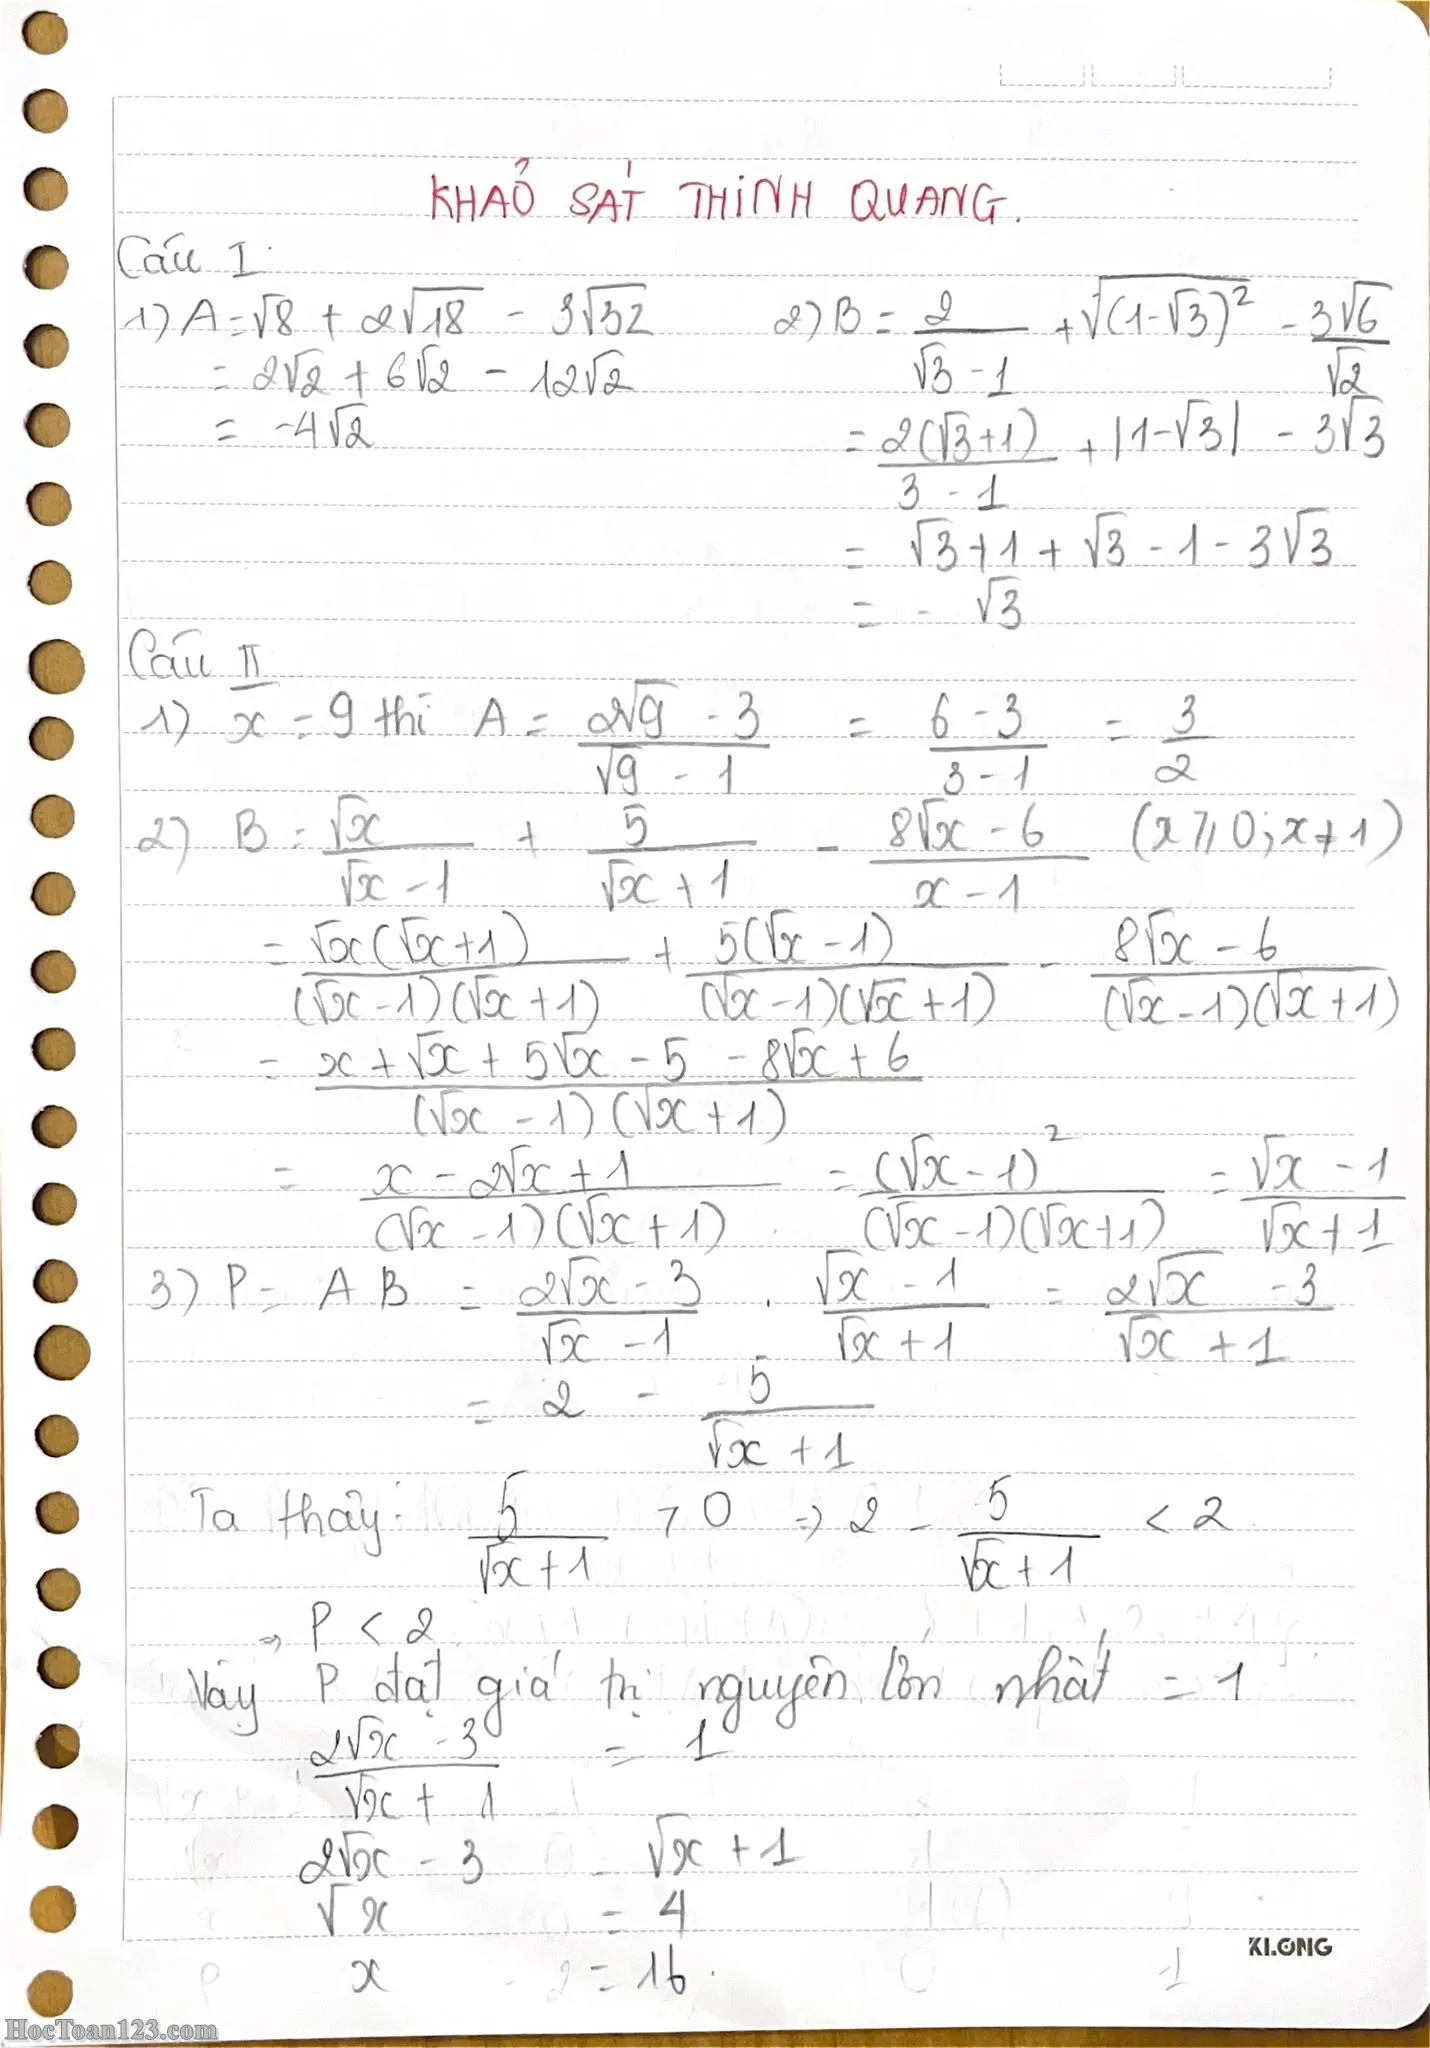 KHẢO SÁT THỊNH QUANG.
Câu I
1) A = √8 + 2√18 - 3√32
= 2√2 + 6√2 - 12√2
= -4√2
2) B = 2/(√3 - 1) + √((1-√3)²) - 3√6/√2
= 2(√3+1)/(3 - 1) + |1-√3| - 3√3
= √3+1 + √3 - 1 - 3√3
= - √3
Câu II
1) x = 9 thì A = (2√9 - 3)/(√9 - 1) = (6 - 3)/(3 - 1) = 3/2
2) B = √x/(√x - 1) + 5/(√x + 1) - (8√x - 6)/(x - 1) (x ⩾ 0; x ≠ 1)
= √x(√x+1)/((√x - 1)(√x + 1)) + 5(√x - 1)/((√x - 1)(√x + 1)) - (8√x - 6)/((√x - 1)(√x + 1))
= (x + √x + 5√x - 5 - 8√x + 6)/((√x - 1)(√x + 1))
= (x - 2√x + 1)/((√x - 1)(√x + 1)) = (√x - 1)²/((√x - 1)(√x+1)) = (√x - 1)/(√x + 1)
3) P = A B = (2√x - 3)/(√x - 1) . (√x - 1)/(√x + 1) = (2√x - 3)/(√x + 1)
= 2 - 5/(√x + 1)
Ta thấy: 5/(√x + 1) > 0 ⇒ 2 - 5/(√x + 1) < 2
⇒ P < 2
Vậy P đạt giá trị nguyên lớn nhất = 1
(2√x - 3)/(√x + 1) = 1
2√x - 3 = √x + 1
√x = 4
x = 16.
KLONG
HocToan123.com